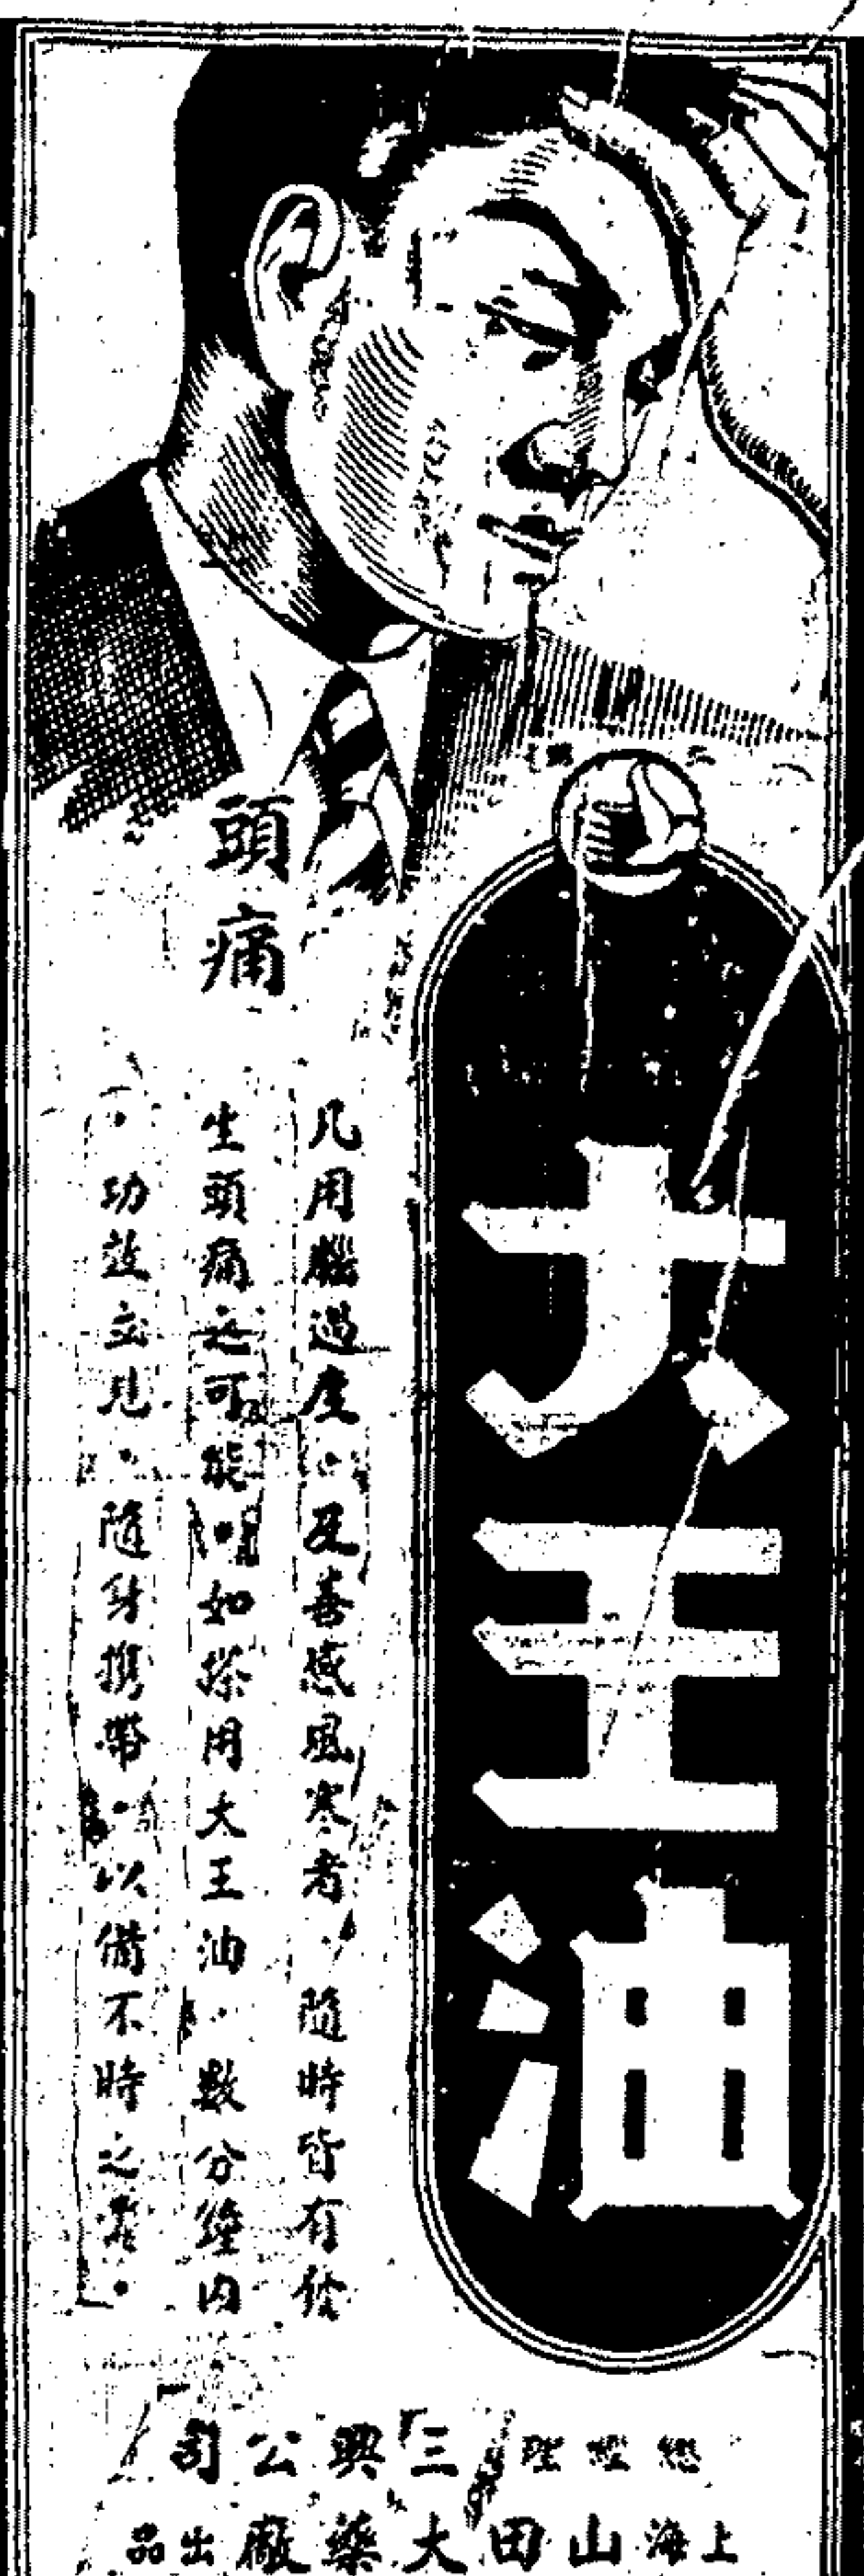 大王油
頭痛
凡用腦過度。及善感風寒者。隨時皆有發
生頭痛之可能。如搽用大王油。數分鐘內
。功效立見。隨身携帶。以備不時之需。
總經理 三興公司
上海山田大藥廠出品